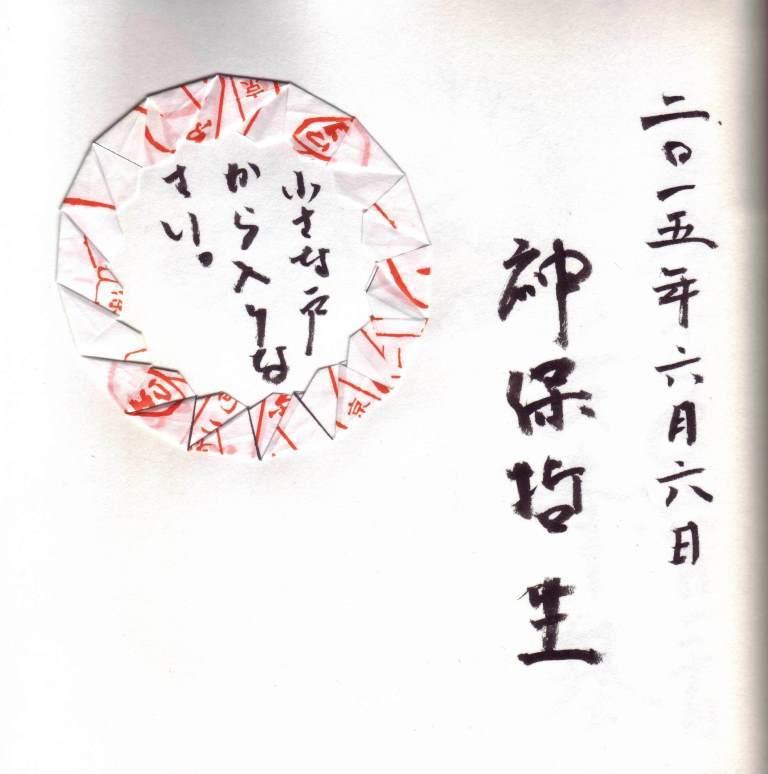 二〇一五年六月六日
神保哲生
小さな戸
から入りな
さい。
京
京